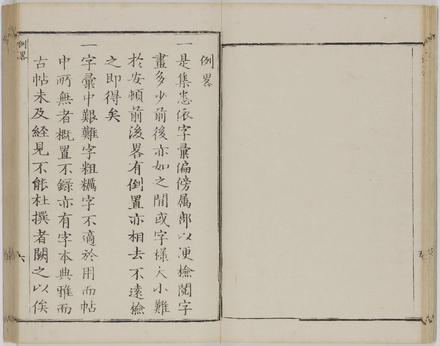 例畧
一是集悉依字彙偏傍属部以便檢閲字
畫多少前後亦如之間或字様大小難
於安頓前後畧有倒置亦相去不遠檢
之即得矣
一字彙中艱難字粗糲字不適於用而帖
中所無者概置不録亦有字本典雅而
古帖未及經見不能杜撰者闕之以俟
例畧
六